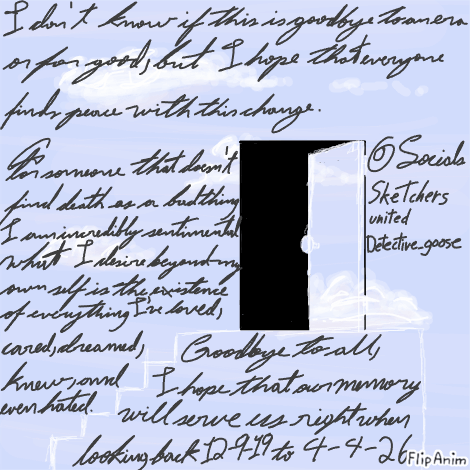 I don't know if this is goodbye to an era
or for good, but I hope that everyone
finds peace with this change.
For someone that doesn't
find death as a bad thing
I am incredibly sentimental
what I desire beyond my
own self is the existence
of everything I've loved,
cared, dreamed,
knew, and
even hated.
@ Socials
Sketchers
united
Detective_goose
Goodbye to all,
I hope that our memory
will serve us right when
looking back 12-9-19 to 4-4-26
FlipAnim